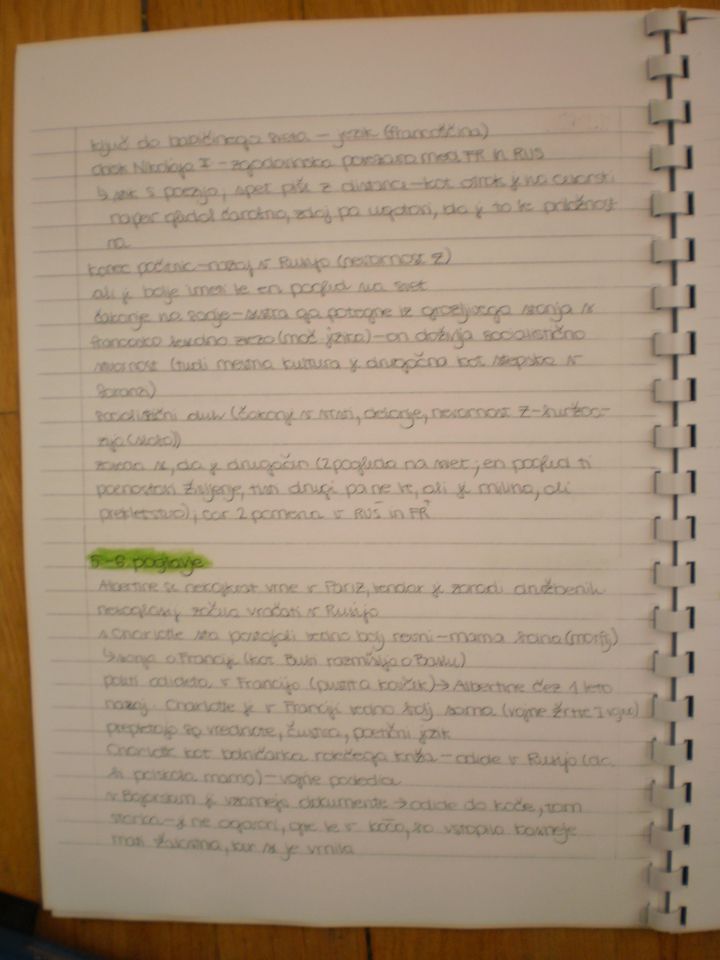 ključ do babičinega sveta - jezik (francoščina)
obisk Nikolaja II - zgodovinska povezava med FR in RUS
↳ stik s poezijo, spet piše z distance - kot otrok je na
naper gledal čarobno, zdaj pa ugotovi, da je to le priložnost
na
konec počitnic - nazaj v Rusijo (nevarnost z)
ali je bolje imeti le en pogled na svet
čakanje na sestra ga potegne iz stanja v
francosko (moč jezika) - on doživlja socialistično
stvarnost (tudi mestna kultura je drugačna kot stepska v
Saranzi)
socialistični duh (čakanje v vrsti, delanje, nevarnost z -
zaveda se, da je drugačen (2 pogleda na svet; en pogled ti
poenostavi življenje, tudi drugi pa ne ve, ali je milina, ali
prekletstvo), car 2 pomena v RUS in FR
5.-8. poglavje
Albertine se nekajkrat vrne v Pariz, vendar je zaradi družbenih
nesoglasij začela vračati v Rusijo
s Charlotte sta postajali vedno bolj revni - mama (morfij)
↳ sanja o Franciji (kot razmišlja o
poleti odideta v Francijo (pustita kovček) → Albertine čez 1 leto
nazaj. Charlotte je v Franciji vedno bolj sama (vojne žrtve I vojne)
prepletajo se vrednote, čustva, poetični jezik
Charlotte kot bolničarka rdečega križa - odide v Rusijo (da
bi poiskala mamo) - vojne posledice
v Bojarsku ji vzamejo dokumente → odide do koče, tam
starka - je ne ogovori, gre le v kočo, za vstopila kasneje
mati žalostna, ker se je vrnila